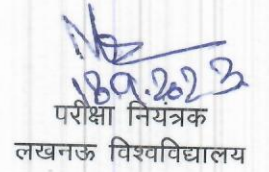 18.9.2023
परीक्षा नियंत्रक
लखनऊ विश्वविद्यालय